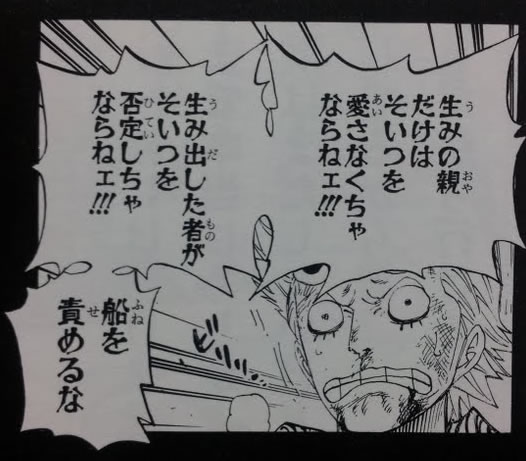 生みの親
だけは
そいつを
愛さなくちゃ
ならねェ!!!
生み出した者が
そいつを
否定しちゃ
ならねェ!!!
船を
責めるな
ビリビリ